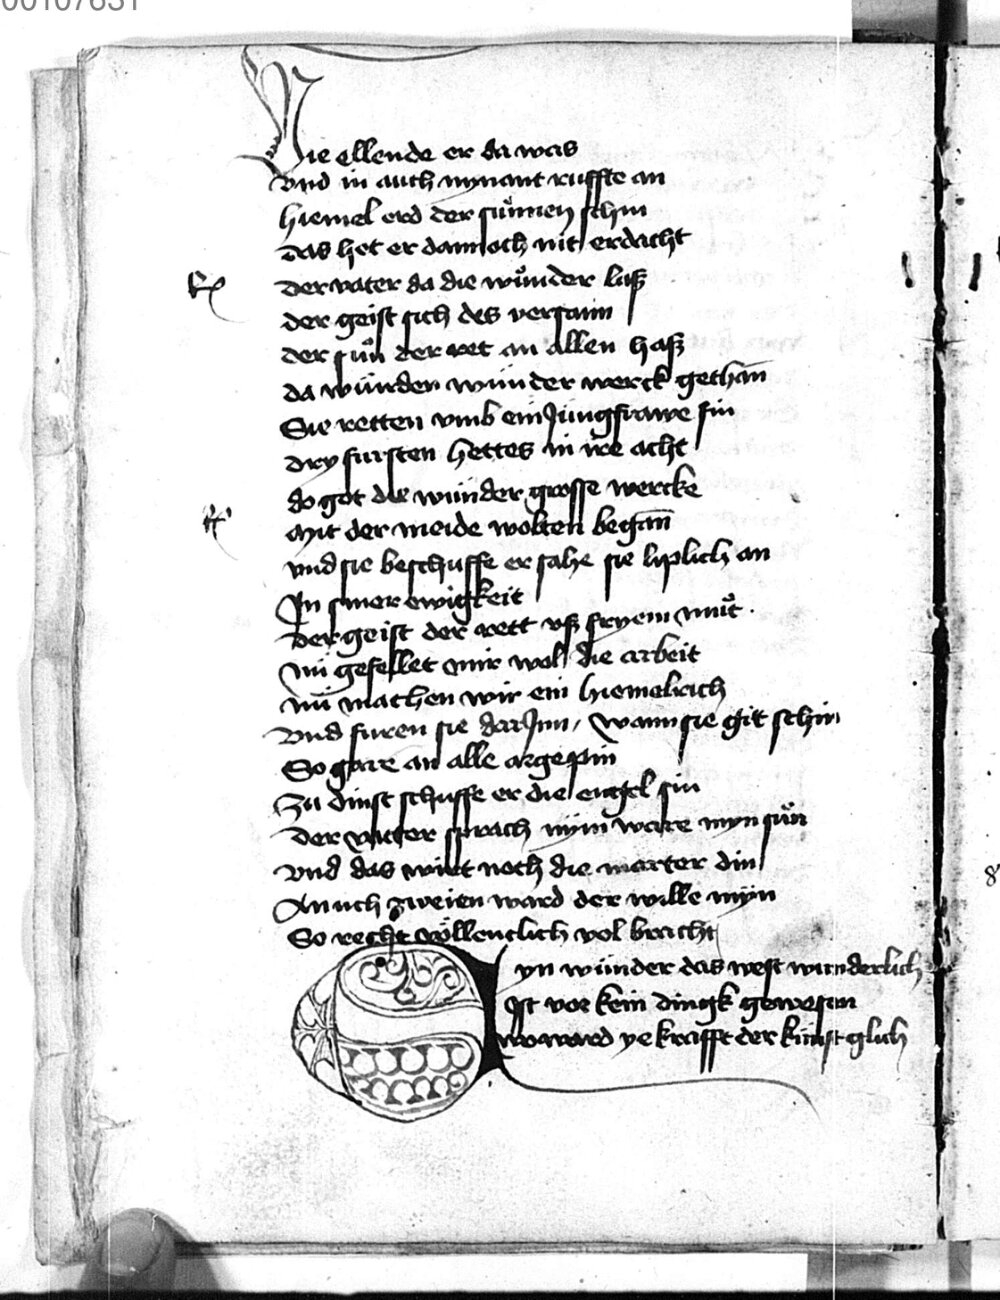 00107831
Wie ellende er da was
Vnd in auch nymant ruffte an
hiemel erd der sunnen schin
Das het er dannoch nit erdacht
Der vater da die wunder laß
der geist sich des versann
der sun der ret an allen haß
da wurden wunder werck gethan
Sie retten vmb ein Jungfrawe fin
dry fursten hettes in ire acht
do got die wunder grosse wercke
Mit der meide wolten began
vnd sie beschuffe er sahe sie liplich an
In siner ewigkeit
Der geist der rett vß fryem mut
nu gefellet mir wol die arbeit
nu machen wir ein hiemelrich
Vnd furen sie dar Inn / wann sie git schin
So gare an alle arge pin
Zu dinst schuffe er die engel fin
Der vatter sprach nym ware myn sun
Vnd das wirt noch die marter din
An uch zweien ward der wille myn
So recht vollenclich vol bracht
Eyn wunder das west wunderlich
Ist vor kein dingk gewesen
wo ward ye krafft der kunst glich